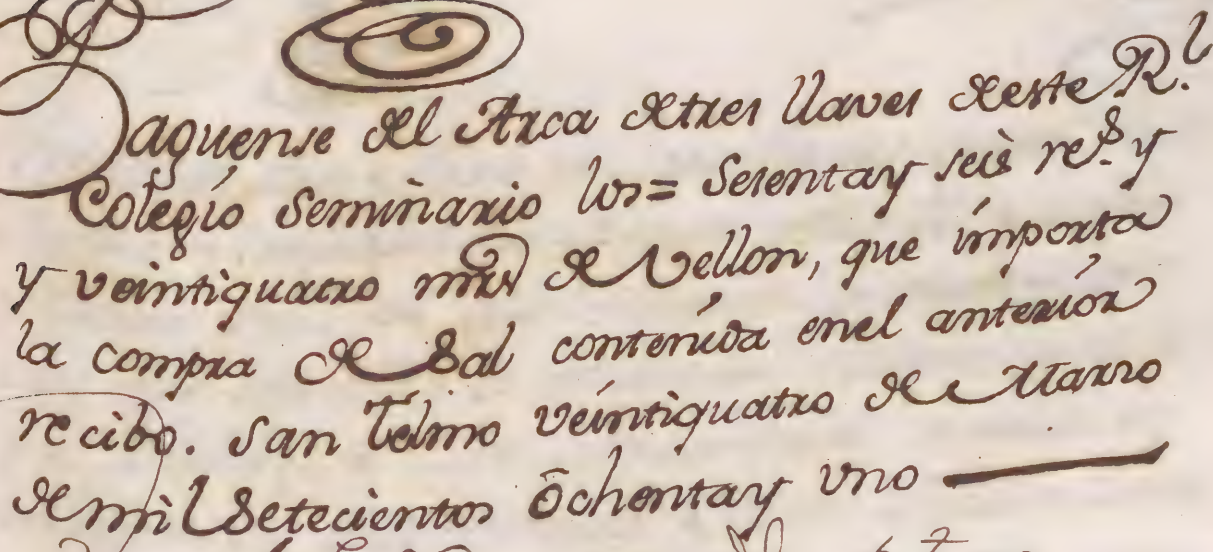 Saquense del Arca de tres llaves de este R.l
Colegio Seminario los = Sesentay seis res.s y
y veintiquatro mrs de Vellon, que importa
la compra de Sal contenida enel anterior
recibo. San Telmo veintiquatro de Marzo
de mil Setecientos Ochentay uno